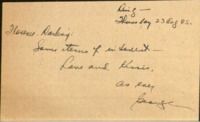 Thursday 23 Aug
Florence Darling:
Some items of interest—
Love and Kisses,
as ever
George